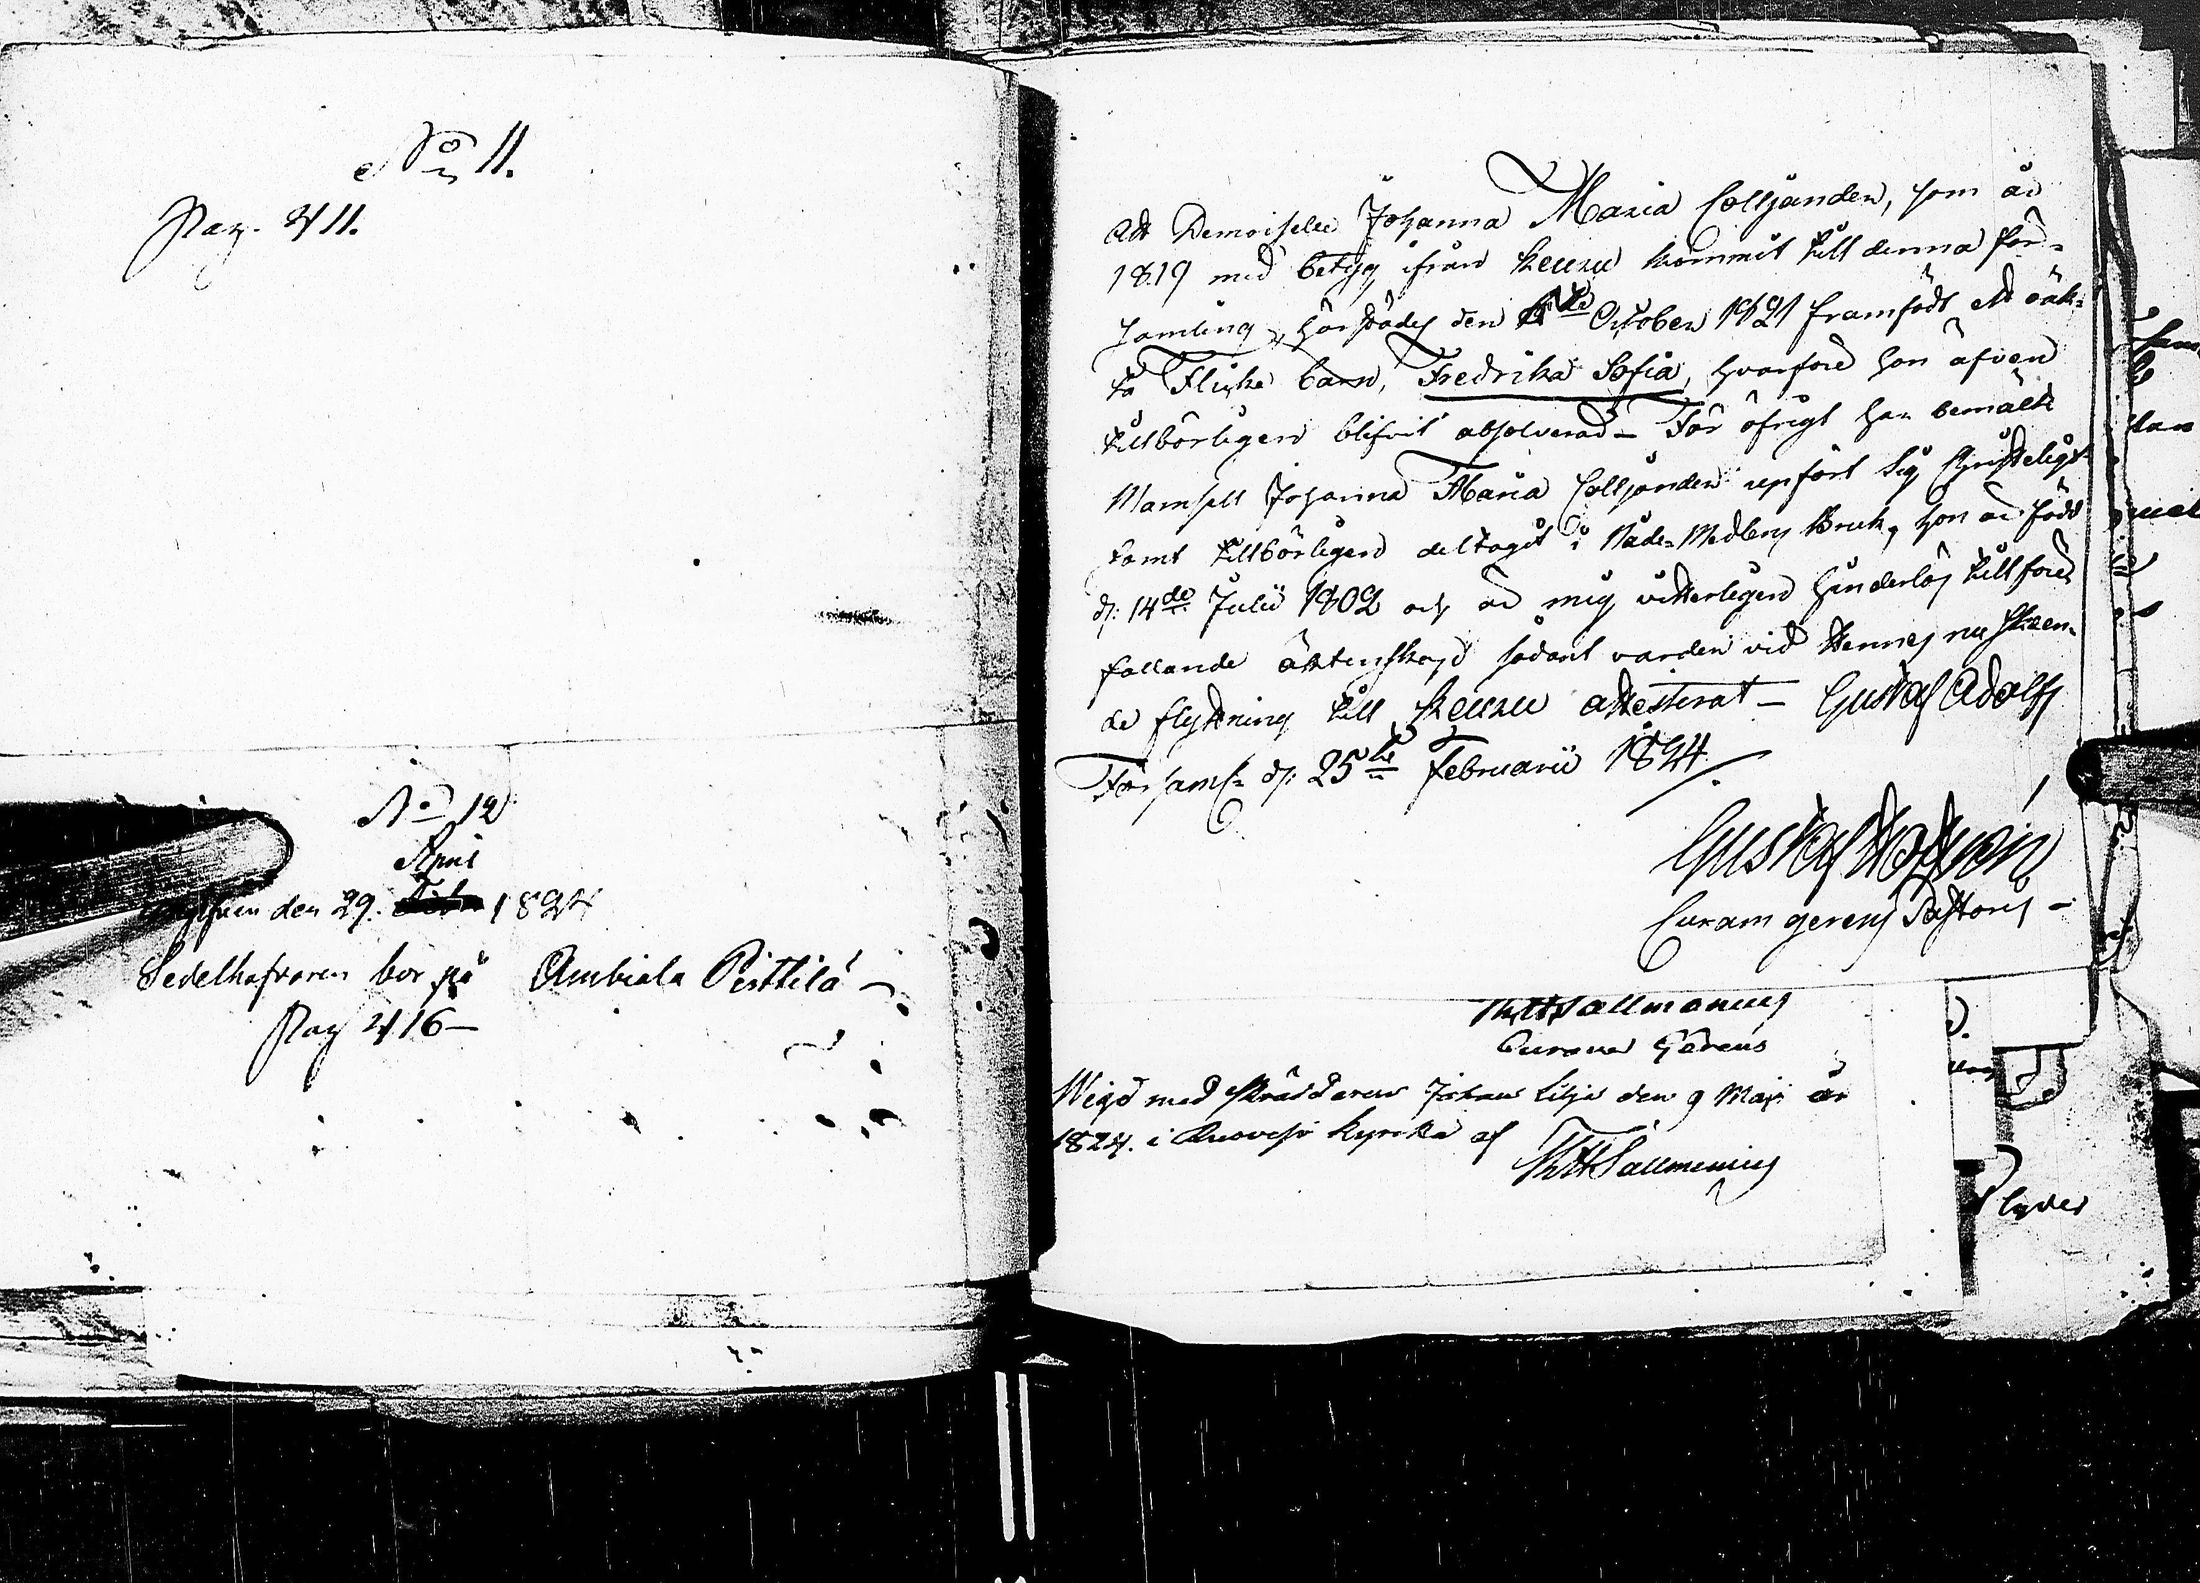 No 11.
Pag. 411.
No 12
April
den 29. 1824
Sedelhafvaren bor på Ambiala Perttilä
Pag 416
Att Demoiselle Johanna Maria Colljander, som år
1819 med betyg ifrån Keuru kommit till denna För-
samling, härstädes den October 1821 framfödt ett oäk-
ta Flicke barn, Fredrika Sofia, hvarföre hon äfven
tillbörligen blifvit absolverad – För öfrigt har bemälte
Mamsell Johanna Maria Colljander upfört sig Christeligt
samt tillbörligen deltagit i Nåde-Medlens Bruk, hon är född
d: 14de Julii 1802 och är mig vitterligen hinderlös till före-
fallande äktenskap sådant varder vid Hennes nu skeen-
de flyttning till Keuru attesterat – Gustaf Adolfs
Församl: d: 25te Februarii 1824.
Gustaf
Curam gerens Pastoris –
Sallmenius
Curam Gerens
Wigd med Skräddaren Johan Lilja den 9 Maji år
1824. i Ruovesi kyrka af
Sallmenius